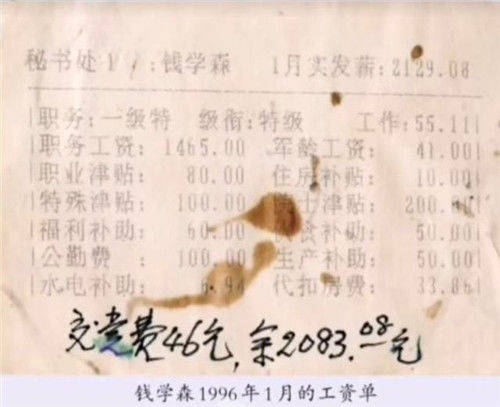 秘书处1 :钱学森 1月实发薪:2129.08
职务:一级特 级衔:特级 工作:55.11
职务工资: 1465.00 军龄工资: 41.00
职业津贴: 80.00 住房补贴: 10.00
特殊津贴: 100.00 士津贴: 200.
福利补助: 60.00 食补助: 50.00
公勤费: 100.00 生产补助: 50.00
水电补助: 6.94 代扣房费: 33.86
交党费46元,余2083.08元
钱学森1996年1月的工资单